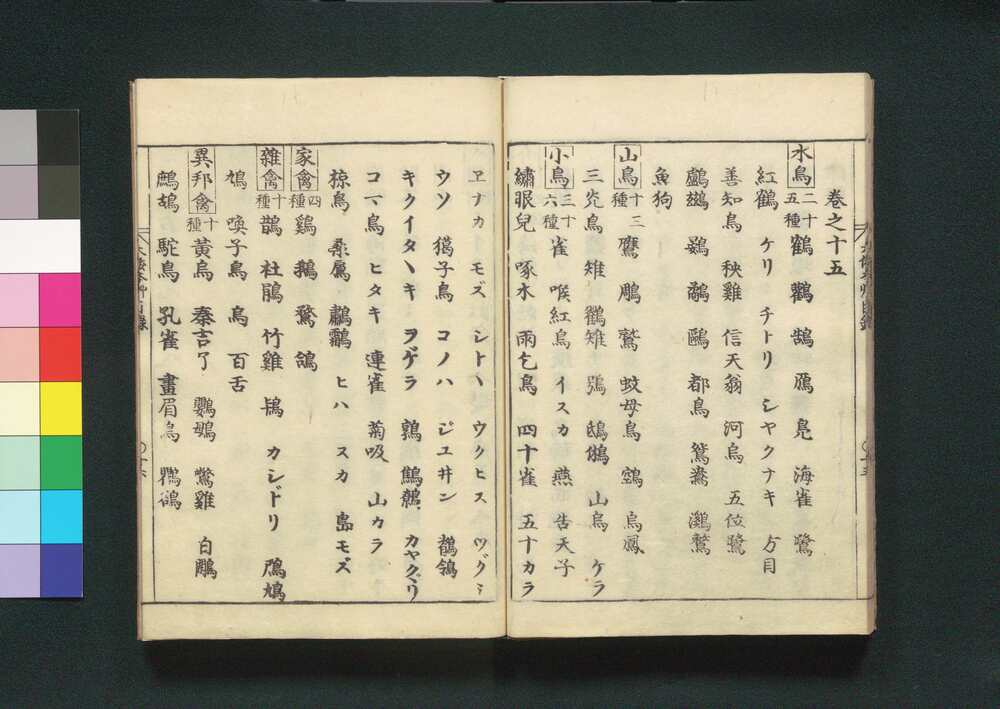 卷之十五
水鳥二十五種 鶴 鸛 鵠 鴈 鳧 海雀 鷺
紅鶴 ケリ チトリ シヤクナキ 方目
善知鳥 秧雞 信天翁 河烏 五位鷺
鸕鷀 鷁 鷸 鷗 都鳥 鴛鴦 鸂鶒
魚狗
山鳥十三種 鷹 鵰 鷲 蚊母鳥 鵼 烏鳳
三光鳥 雉 鸐雉 鴞 鴟鵂 山烏 ケラ
小鳥三十六種 雀 喉紅鳥 イスカ 燕 告天子
繡眼兒 啄木 雨乞鳥 四十雀 五十カラ
ヱナカ モズ シトヽ ウクヒス ツグミ
ウソ 獦子鳥 コノハ ジユ井ン 鶺鴒
キクイタヽキ ヲゲラ 鶉 鷦鷯 カヤグリ
コマ鳥 ヒタキ 連雀 菊吸 山カラ
椋鳥 桑鳸 鸜鵒 ヒハ スカ 島モズ
家禽四種 鷄 鵝 鶩 鴿
雜禽十種 鵲 杜鵑 竹雞 鴇 カシドリ 鴈鳩
鳩 喚子鳥 烏 百舌
異邦禽十種 黃鳥 秦吉了 鸚鵡 鷩雞 白鷴
鷓鴣 駝鳥 孔雀 畫眉鳥
大和本艸目錄